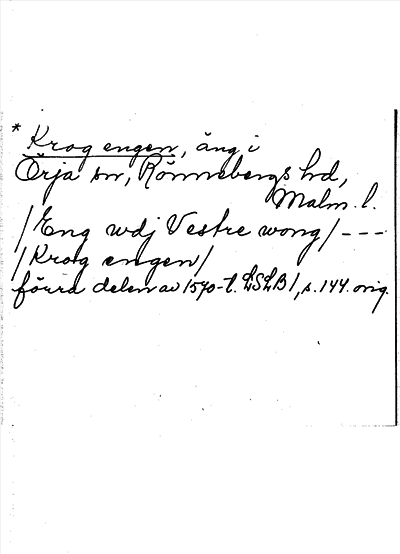 * Krog engen, äng i
Örja sn, Rönnebergs hd,
Malm. l.
/Eng wdj Vestre wong/ ---
/Krog engen/
förra delen av 1570-t. LSLB1, s. 144. orig.